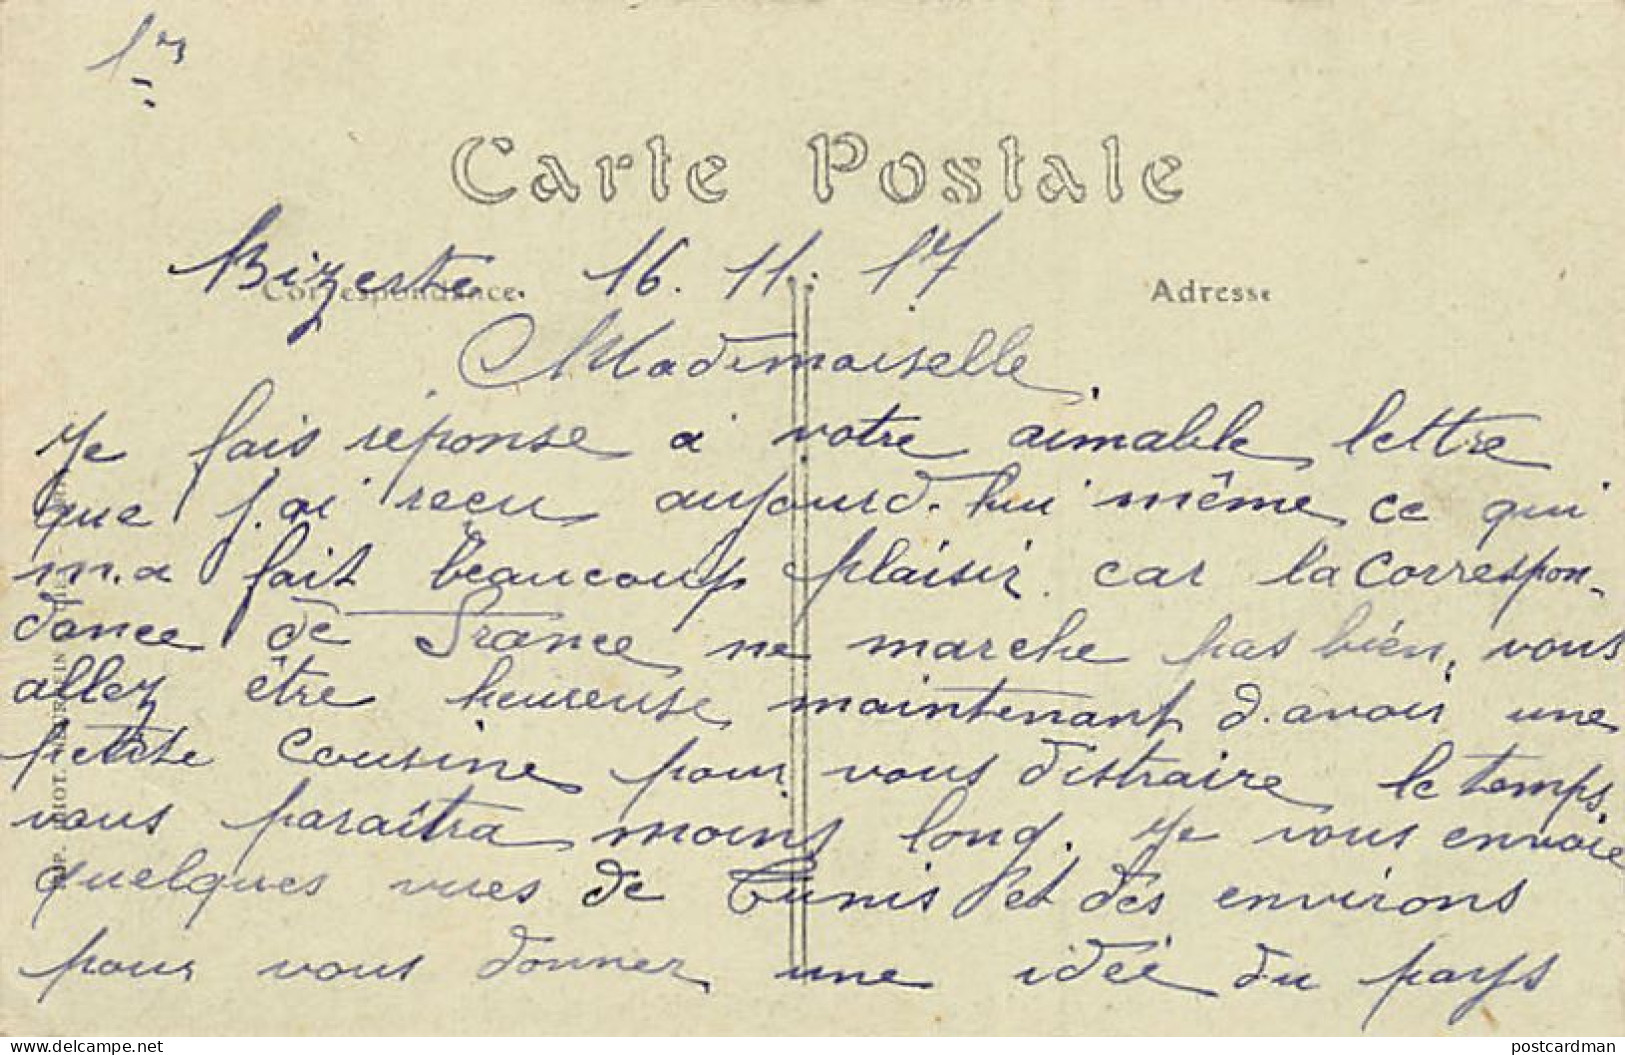 1re
Carte Postale
Bizerte 16. 11. 17
Correspondance.
Adresse
Mademoiselle
Je fais réponse a votre aimable lettre
que j.ai reçu aujourd.hui même ce qui
m.a fait beaucoup plaisir car la correspon-
dance de France ne marche pas bien, vous
allez être heureuse maintenant d.avoir une
petite cousine pour vous distraire le temps
vous paraîtra moins long. Je vous envoie
quelques vues de Tunis et des environs
pour vous donner une idée du pays
delcampe.net
postcardman